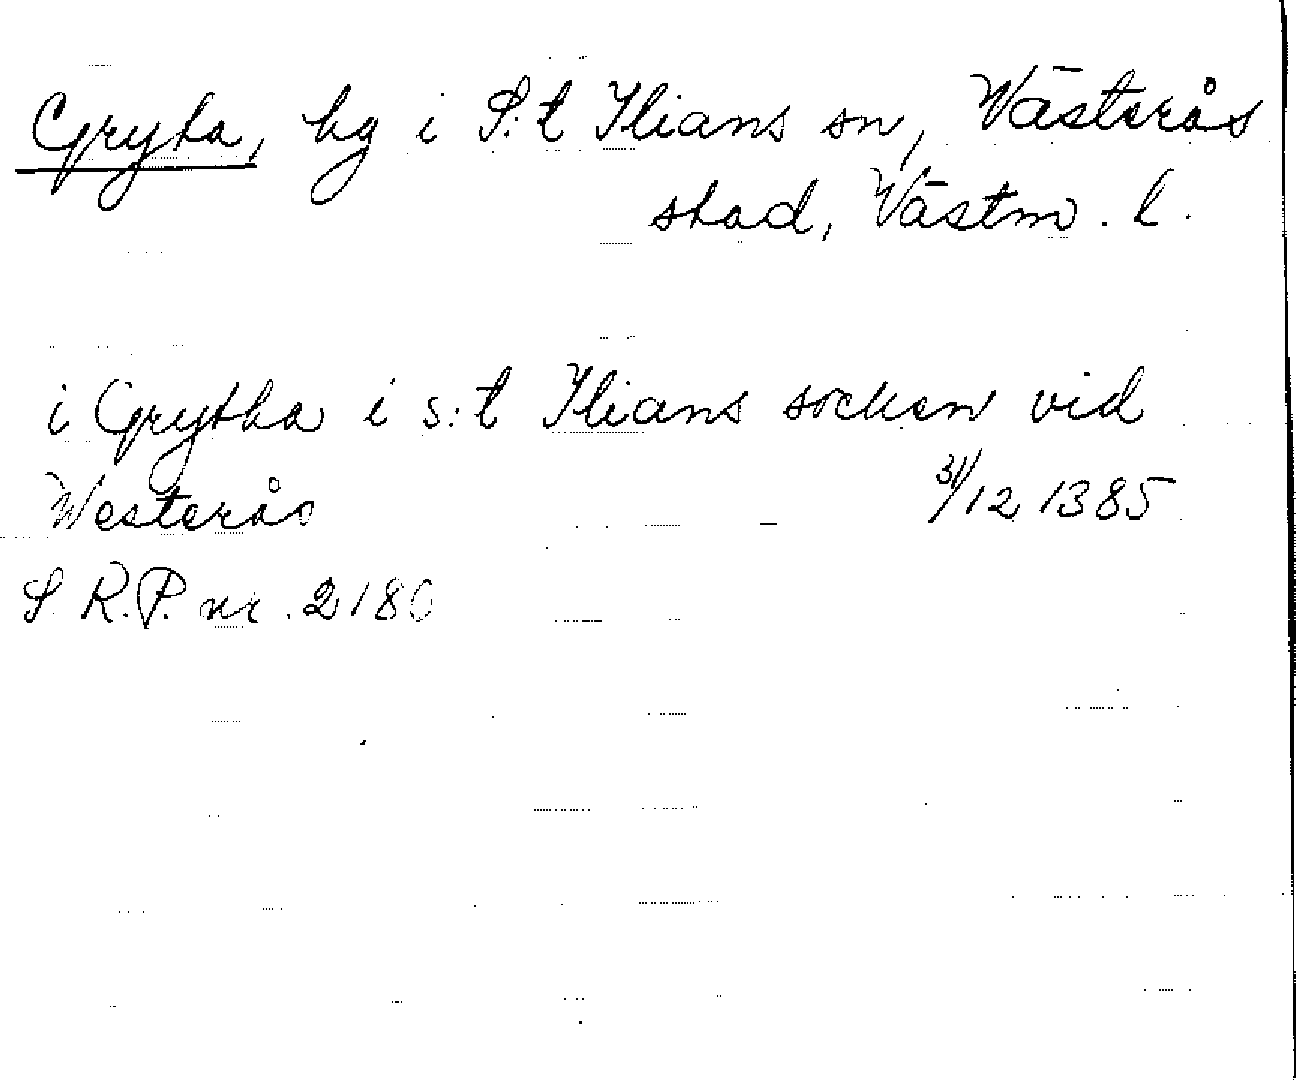 Gryta, by i S:t Ilians sn, Västerås
stad, Västm. l.
i Grytha i s:t Ilians socken vid
Westerås 31/12 1385
S R.P. nr. 2180